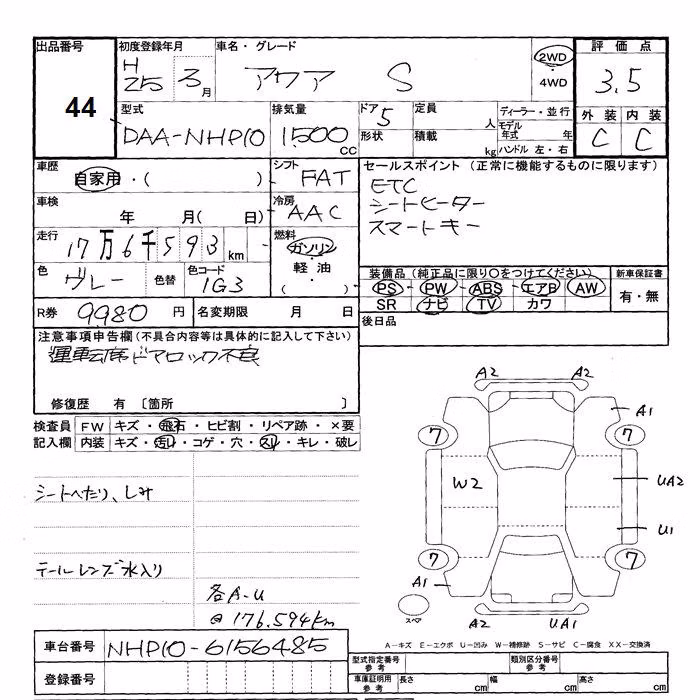 出品番号 初度登録年月 車名・グレード 評価点
44 H 25 3月 アクア S 2WD ・ 4WD 3.5
型式 排気量 ドア 5 定員 人 ディーラー・並行 外装 内装
DAA-NHP10 1500cc 形状 積載 kg モデル年式 年 C C
ハンドル 左・右
車歴 シフト セールスポイント (正常に機能するものに限ります)
自家用・( ) FAT ETC
車検 冷房 シートヒーター
年 月( 日) AAC スマートキー
走行 燃料
17万6千593km ガソリン・軽油・( )
色 色替 色コード 装備品 (純正品に限り○をつけてください) 新車保証書
グレー 1G3 PS・PW・ABS・エアB・AW 有・無
SR ナビ TV カワ
R券 9980円 名変期限 月 日 後日品
注意事項申告欄(不具合内容等は具体的に記入して下さい)
運転席ドアロック不良
修復歴 有 〔箇所 〕
検査員 FW キズ・飛石・ヒビ割・リペア跡・×要
記入欄 内装 キズ・汚れ・コゲ・穴・スレ・キレ・破レ
A2 A2
A1
7 7
シートへたり、しみ
W2 UA2
U1
テールレンズ水入り
7 7
A1
各A-U
@176.594km
スペア A2 UA1
A−キズ E−エクボ U−凹み W−補修跡 S−サビ C−腐食 XX−交換済
車台番号 NHP10-6156485
型式指定番号 参考 類別区分番号 参考
登録番号 車庫証明用 参考 長さ cm 幅 cm 高さ cm